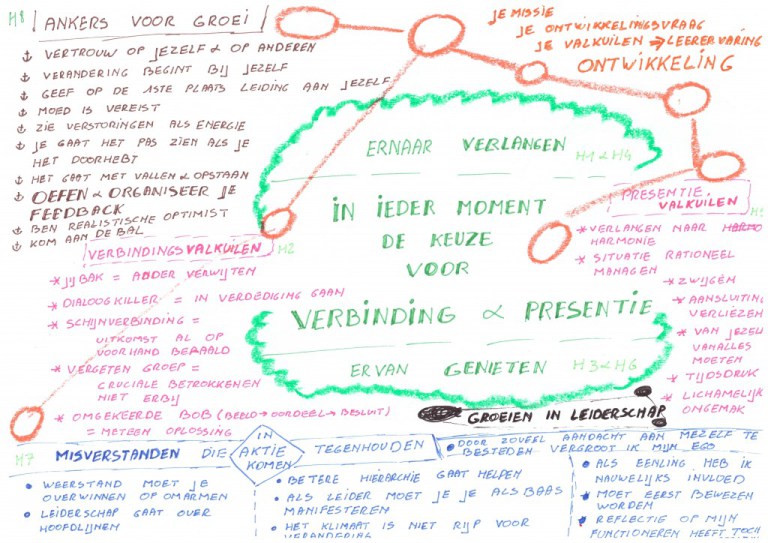 H8 ANKERS VOOR GROEI
VERTROUW OP JEZELF & OP ANDEREN
VERANDERING BEGINT BIJ JEZELF
GEEF OP DE 1STE PLAATS LEIDING AAN JEZELF
MOED IS VEREIST
ZIE VERSTORINGEN ALS ENERGIE
JE GAAT HET PAS ZIEN ALS JE
HET DOORHEBT
HET GAAT MET VALLEN & OPSTAAN
OEFEN & ORGANISEER JE
FEEDBACK
BEN REALISTISCHE OPTIMIST
KOM AAN DE BAL
JE MISSIE
JE ONTWIKKELINGSVRAAG
JE VALKUILEN → LEERERVARING
ONTWIKKELING
ERNAAR VERLANGEN
H1 & H4
IN IEDER MOMENT
DE KEUZE
VOOR
VERBINDING & PRESENTIE
ERVAN GENIETEN H3 & H6
VERBINDINGSVALKUILEN H2
* JIJBAK = ANDER VERWIJTEN
* DIALOOGKILLER = IN VERDEDIGING GAAN
* SCHIJNVERBINDING =
UITKOMST AL OP
VOORHAND BEPAALD
* VERGETEN GROEP =
CRUCIALE BETROKKENEN
NIET ERBIJ
* OMGEKEERDE BOB (BEELD → OORDEEL → BESLUIT)
= METEEN OPLOSSING
PRESENTIE
VALKUILEN
* VERLANGEN NAAR
HARMONIE
* SITUATIE RATIONEEL
MANAGEN
* ZWIJGEN
* AANSLUITING
VERLIEZEN
* VAN JEZELF
VANALLES
MOETEN
* TIJDSDRUK
* LICHAMELIJK
ONGEMAK
GROEIEN IN LEIDERSCHAP
H7 MISVERSTANDEN DIE IN AKTIE KOMEN TEGENHOUDEN
• WEERSTAND MOET JE
OVERWINNEN OF OMARMEN
• LEIDERSCHAP GAAT OVER
HOOFDLIJNEN
• BETERE HIERARCHIE GAAT HELPEN
• ALS LEIDER MOET JE JE ALS BAAS
MANIFESTEREN
• HET KLIMAAT IS NIET RIJP VOOR
VERANDERING
• DOOR ZOVEEL AANDACHT AAN MEZELF TE
BESTEDEN VERGROOT IK MIJN EGO
• ALS EENLING HEB IK
NAUWELIJKS INVLOED
* MOET EERST BEWEZEN
WORDEN
* REFLECTIE OP MIJN
FUNCTIONEREN HEEFT TOCH